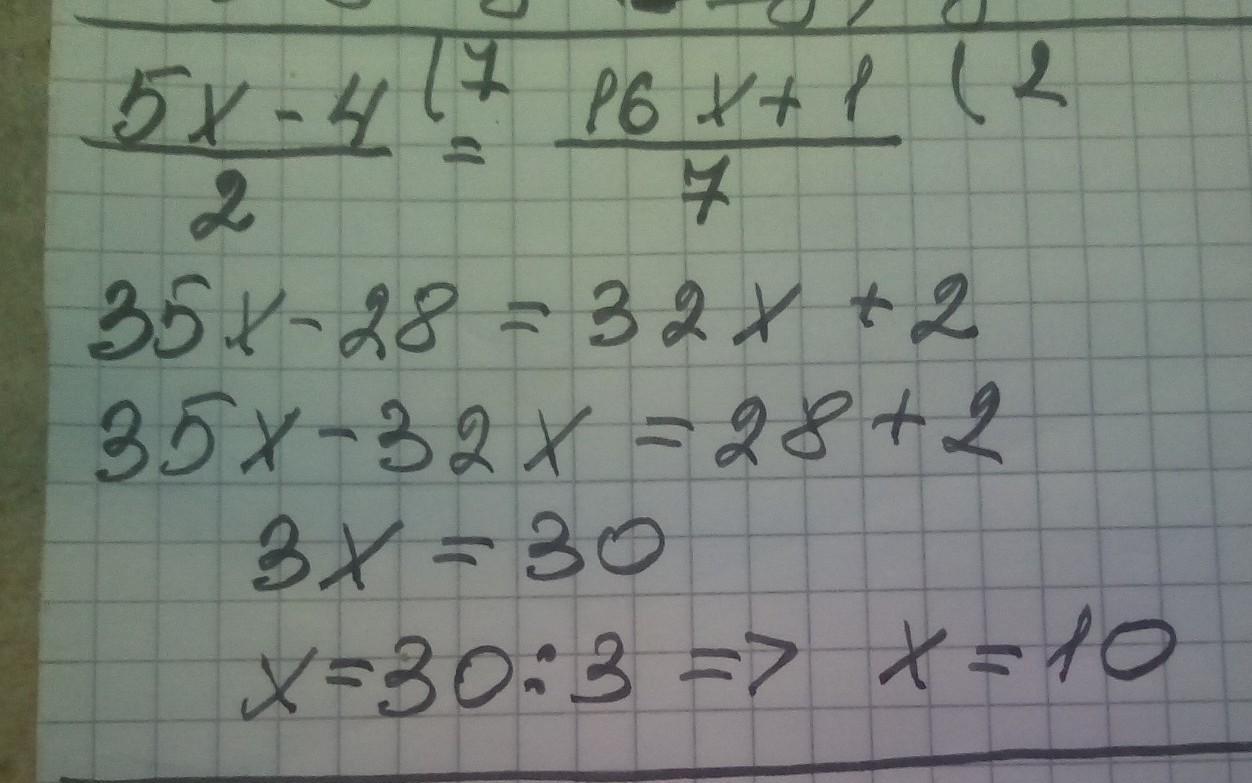 5x - 4 (7 = 16x + 1 ( 2
2 7
35x - 28 = 32x + 2
35x - 32x = 28 + 2
3x = 30
x = 30 : 3 => x = 10